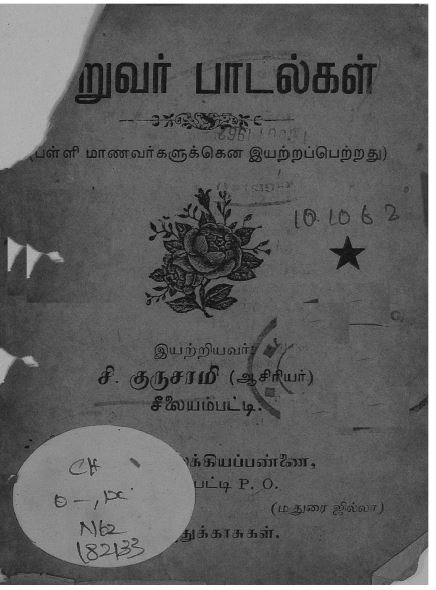 றுவர் பாடல்கள்
(பள்ளி மாணவர்களுக்கென இயற்றப்பெற்றது)
10.10.62
இயற்றியவர்:
சி. குருசாமி (ஆசிரியர்)
சீலையம்பட்டி.
க்கியப்பண்ணை,
பட்டி P. O.
(மதுரை ஜில்லா)
துக்காசுகள்.
CH
0—,
N62
182133